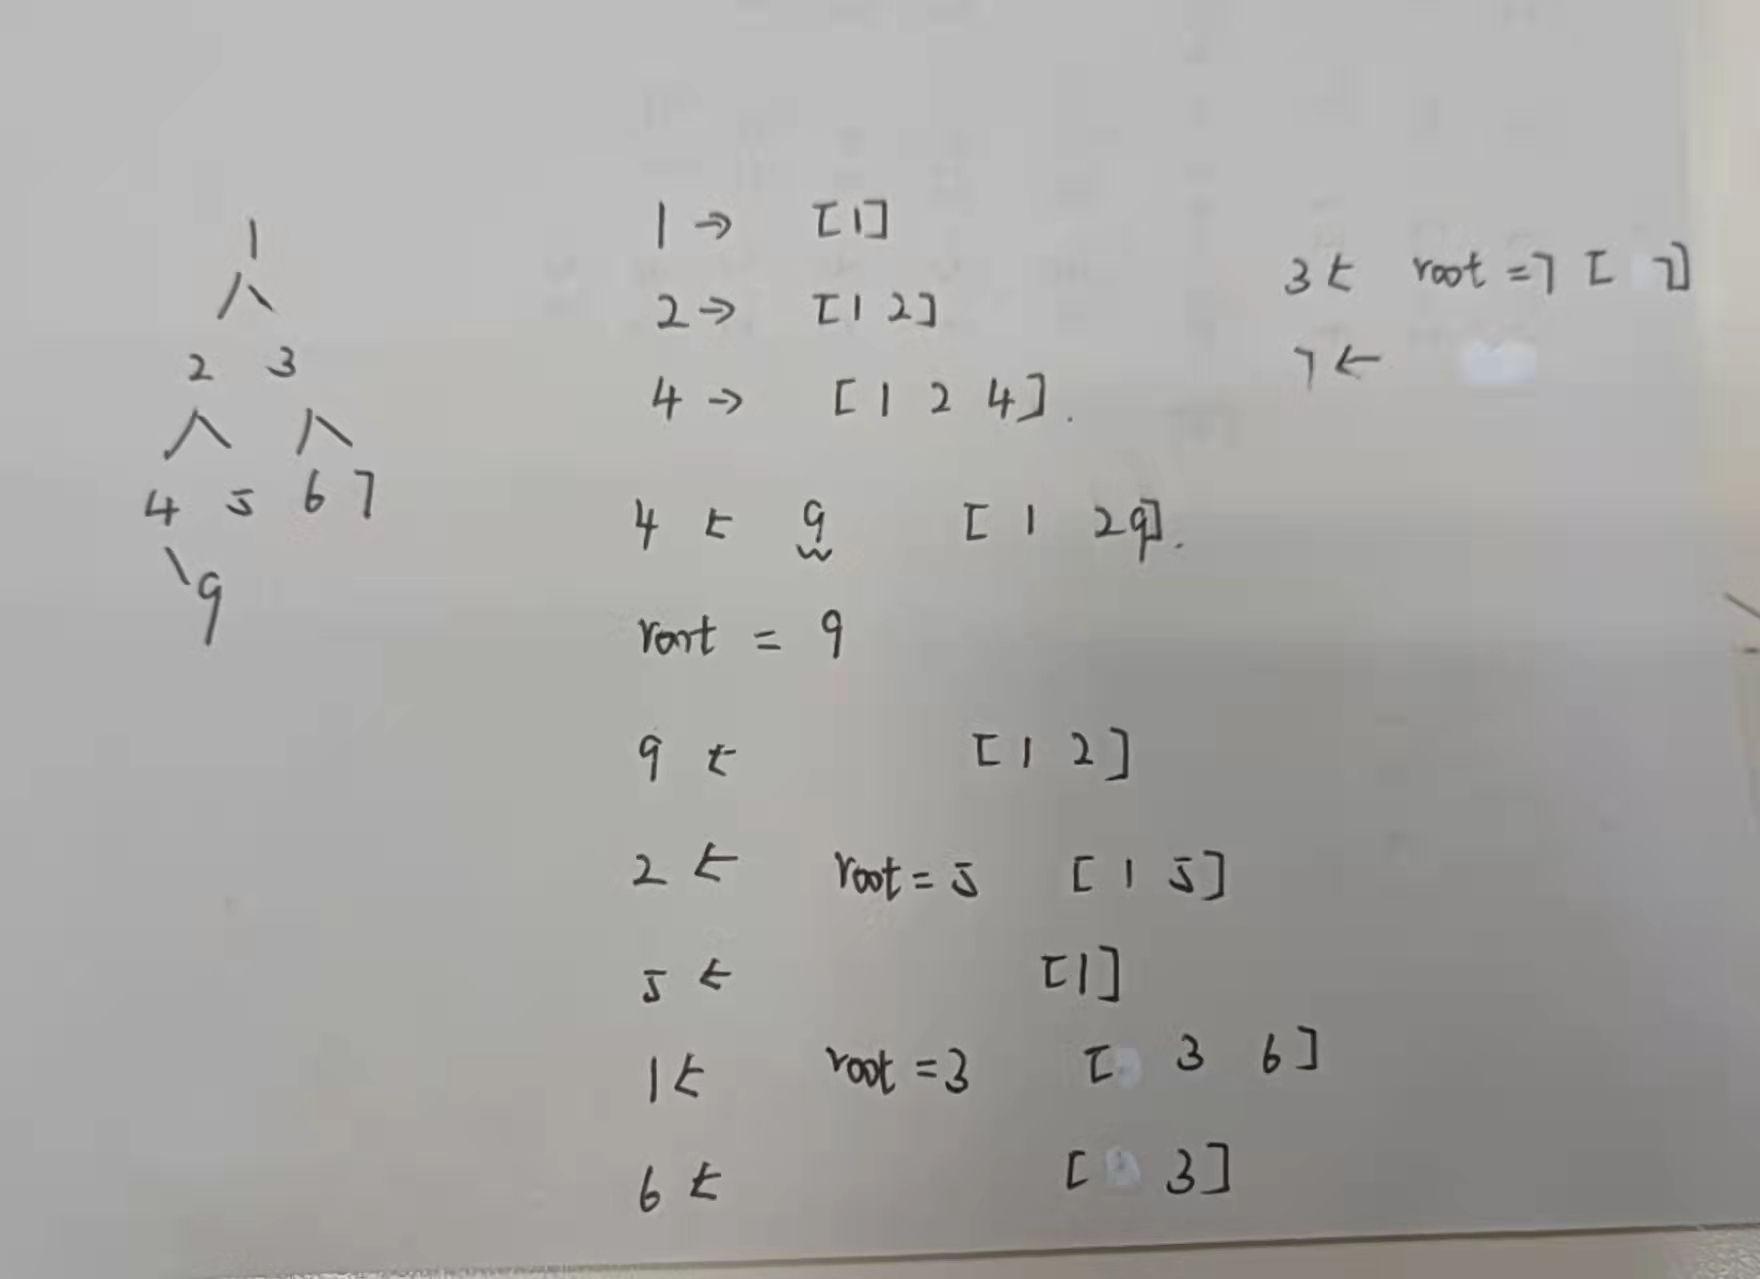 1
2 3
4 5 6 7
9
1 → [1]
2 → [1 2]
4 → [1 2 4].
4 ← 9 [1 2 9].
root = 9
9 ← [1 2]
2 ← root = 5 [1 5]
5 ← [1]
1 ← root = 3 [ 3 6]
6 ← [ 3]
3 ← root = 7 [ 7]
7 ←